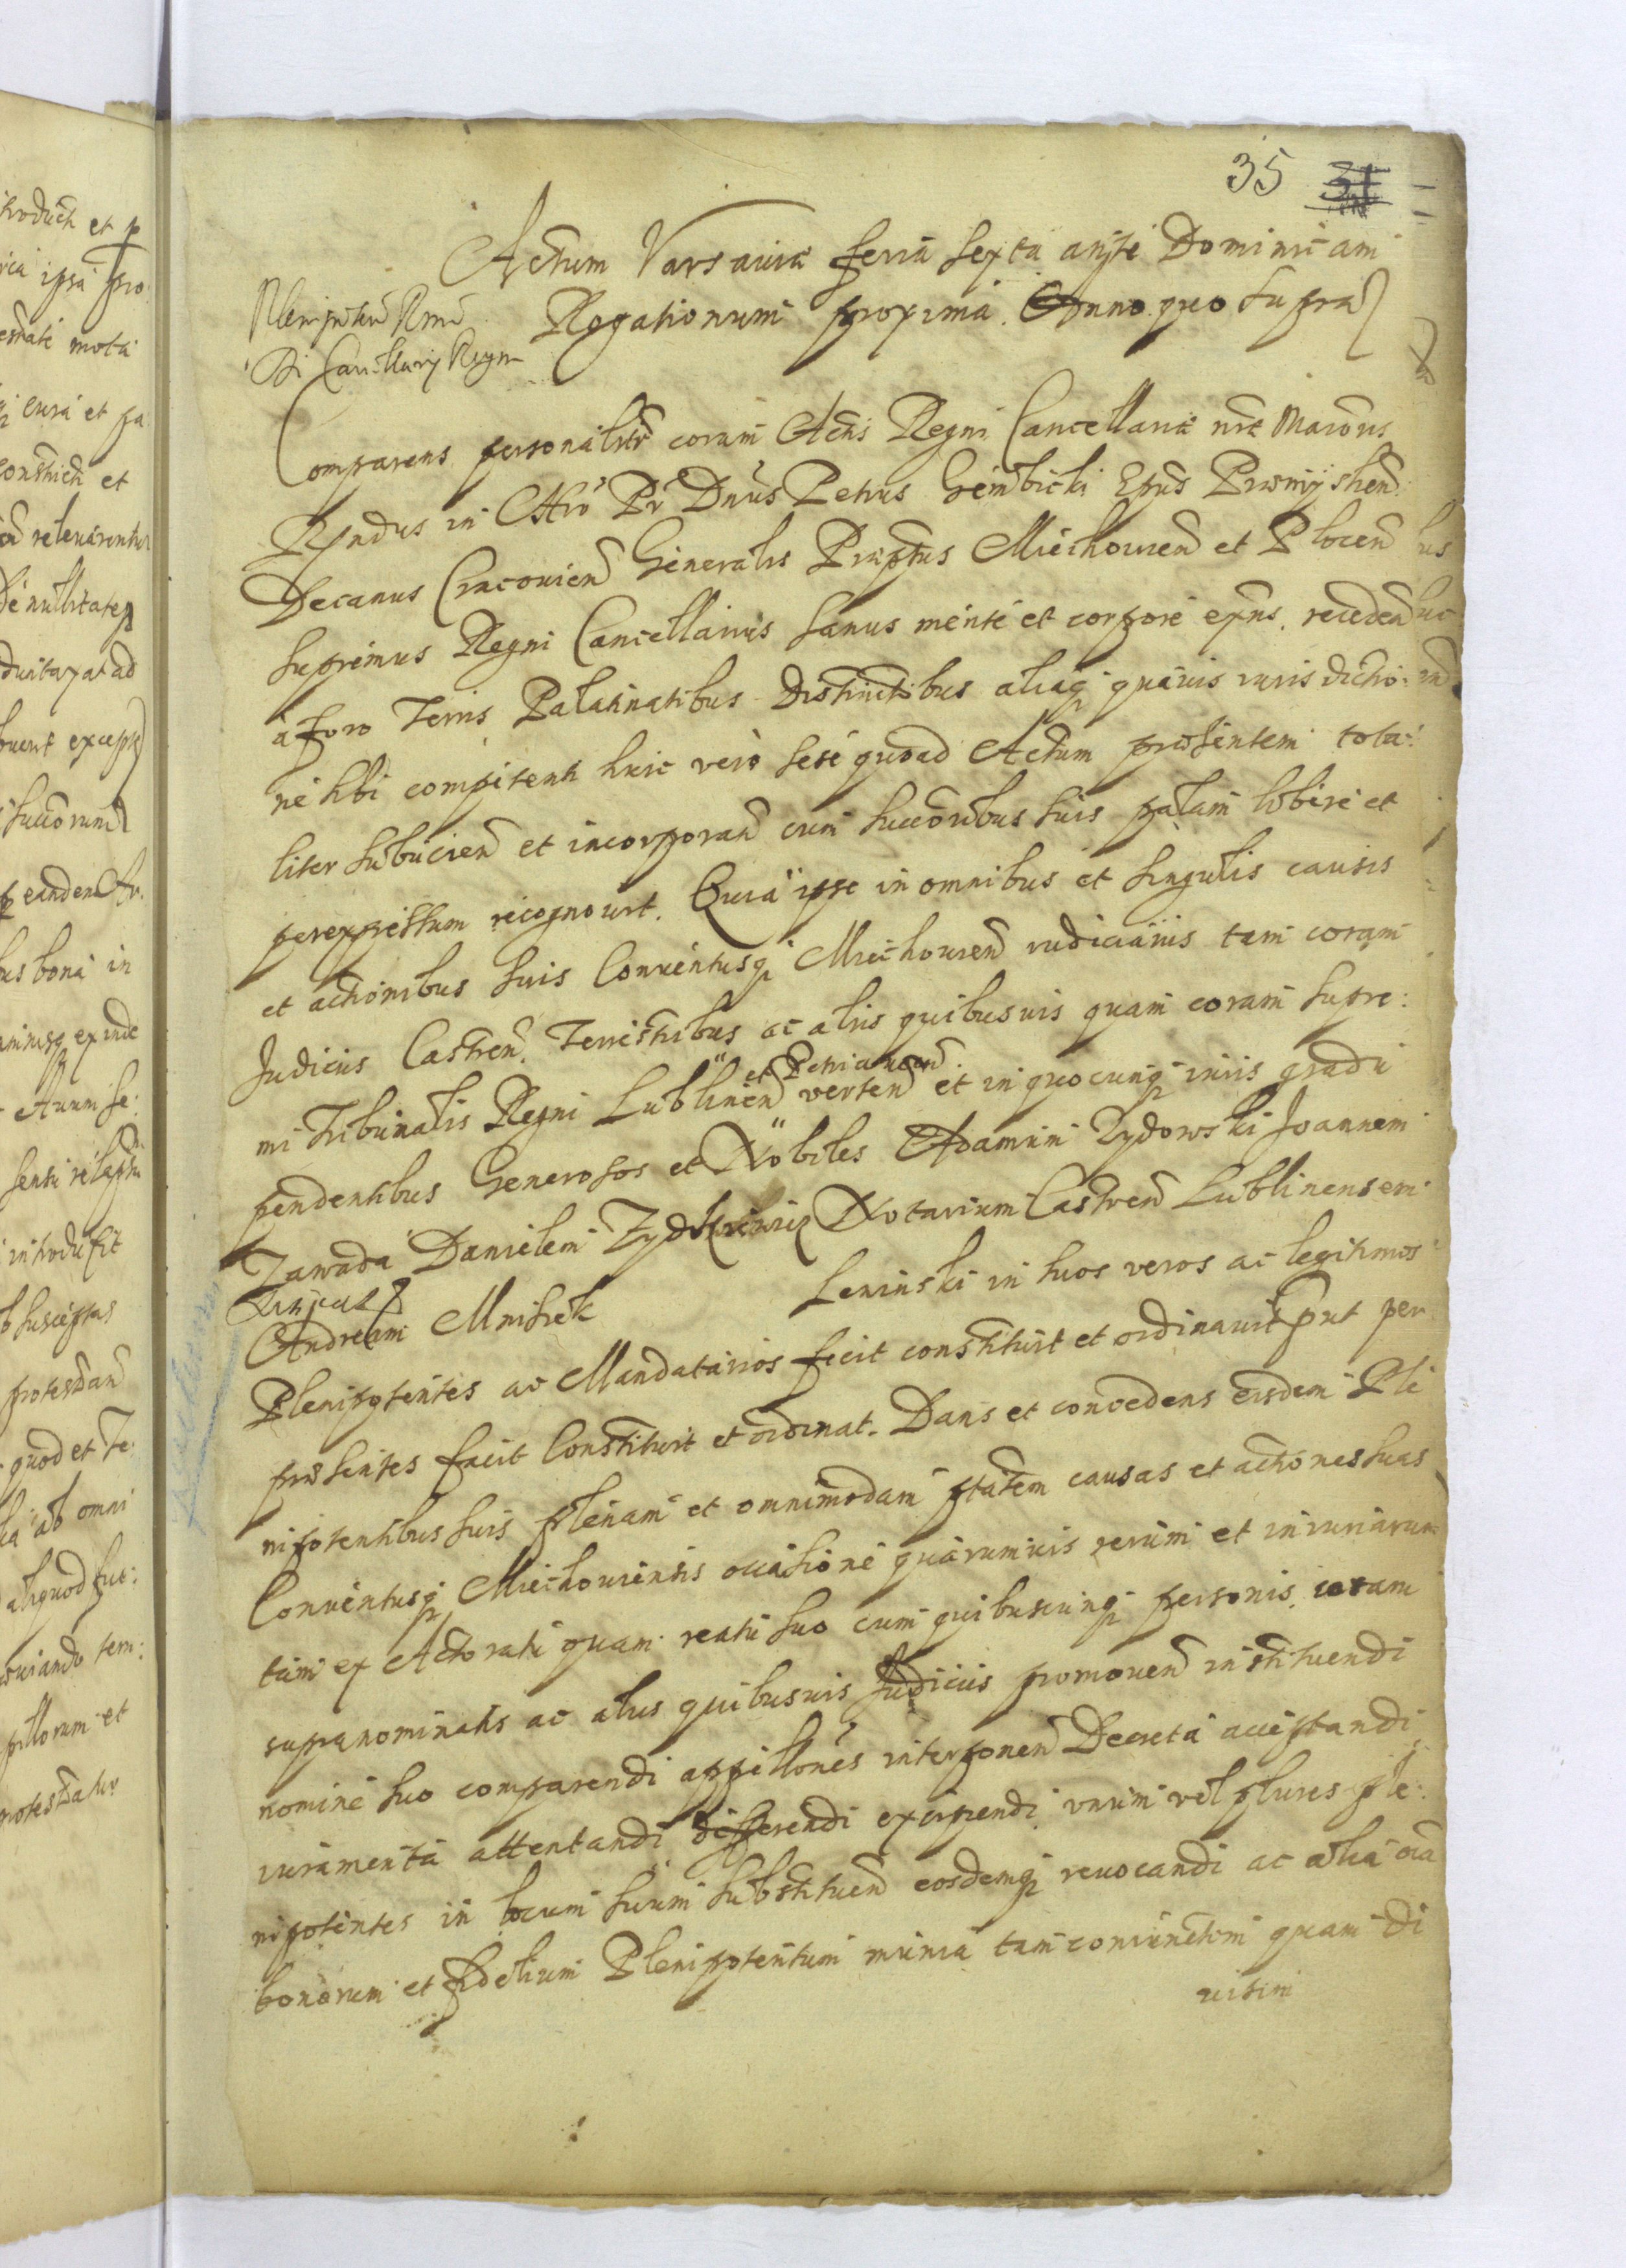 35 31
Actum Varsaviæ feria sexta ante Dominicam
Rogationum proxima. Anno quo supra
Plenipoten Rmi
Di Cancellarij Regni
Comparens personaliter coram Actis Regni Cancellariæ nræ Maioris
Rndus in Chro Pr Dnus Petrus Gembicki Epus Præmÿslien
Decanus Cracovien Generalis Præptus Miechovien et Plocen
Supremus Regni Cancellarius sanus mente et corpore exns. recedend
à foro Terris Palatinatibus Districtibus aliaq quavis iurisdictio:
ne sibi competenti huic vero sese quoad Actum præsentem tota:
liter subiiciend et incorporand cum succoribus suis palam libere et
perexpressum recognovit. Quia ipse in omnibus et singulis causis
et actionibus suis Conventusq Miechovien iudiciarijs tam coram
Judiciis Castren. Terrestribus ac aliis quibusvis quam coram supre:
mi Tribunalis Regni Lublinen et Petricovien verten et in quocunq iuris gradu
pendentibus Generosos et Nobiles Adamum Zydowski Joannem
Zawada Danielem Notarium Castren Lublinensem
Andream Mnisek Leninski in suos veros ac legitimos
Plenipotentes ac Mandatarios fecit constituit et ordinavit put per
præsentes facit Constituit et ordinat. Dans et concedens eisdem Ple
nipotentibus suis plenam et omnimodam ptatem causas et actiones suas
Conventusq Miechoviensis occasione quarumvis rerum et iniuriarum
tam ex Actoratu quam reatu suo cum quibuscunq personis coram
supranominatis ac aliis quibusvis Judiciis promoven instituendi
nomine suo comparendi appellones interponen Decreta acceptandi
iuramenta attentandi differendi excipiendi unum vel plures ple:
nipotentes in locum suum substituen eosdemq revocandi ac alia oia
bonorum et fidelium Plenipotentum munia tam coniunctim quam di
visim